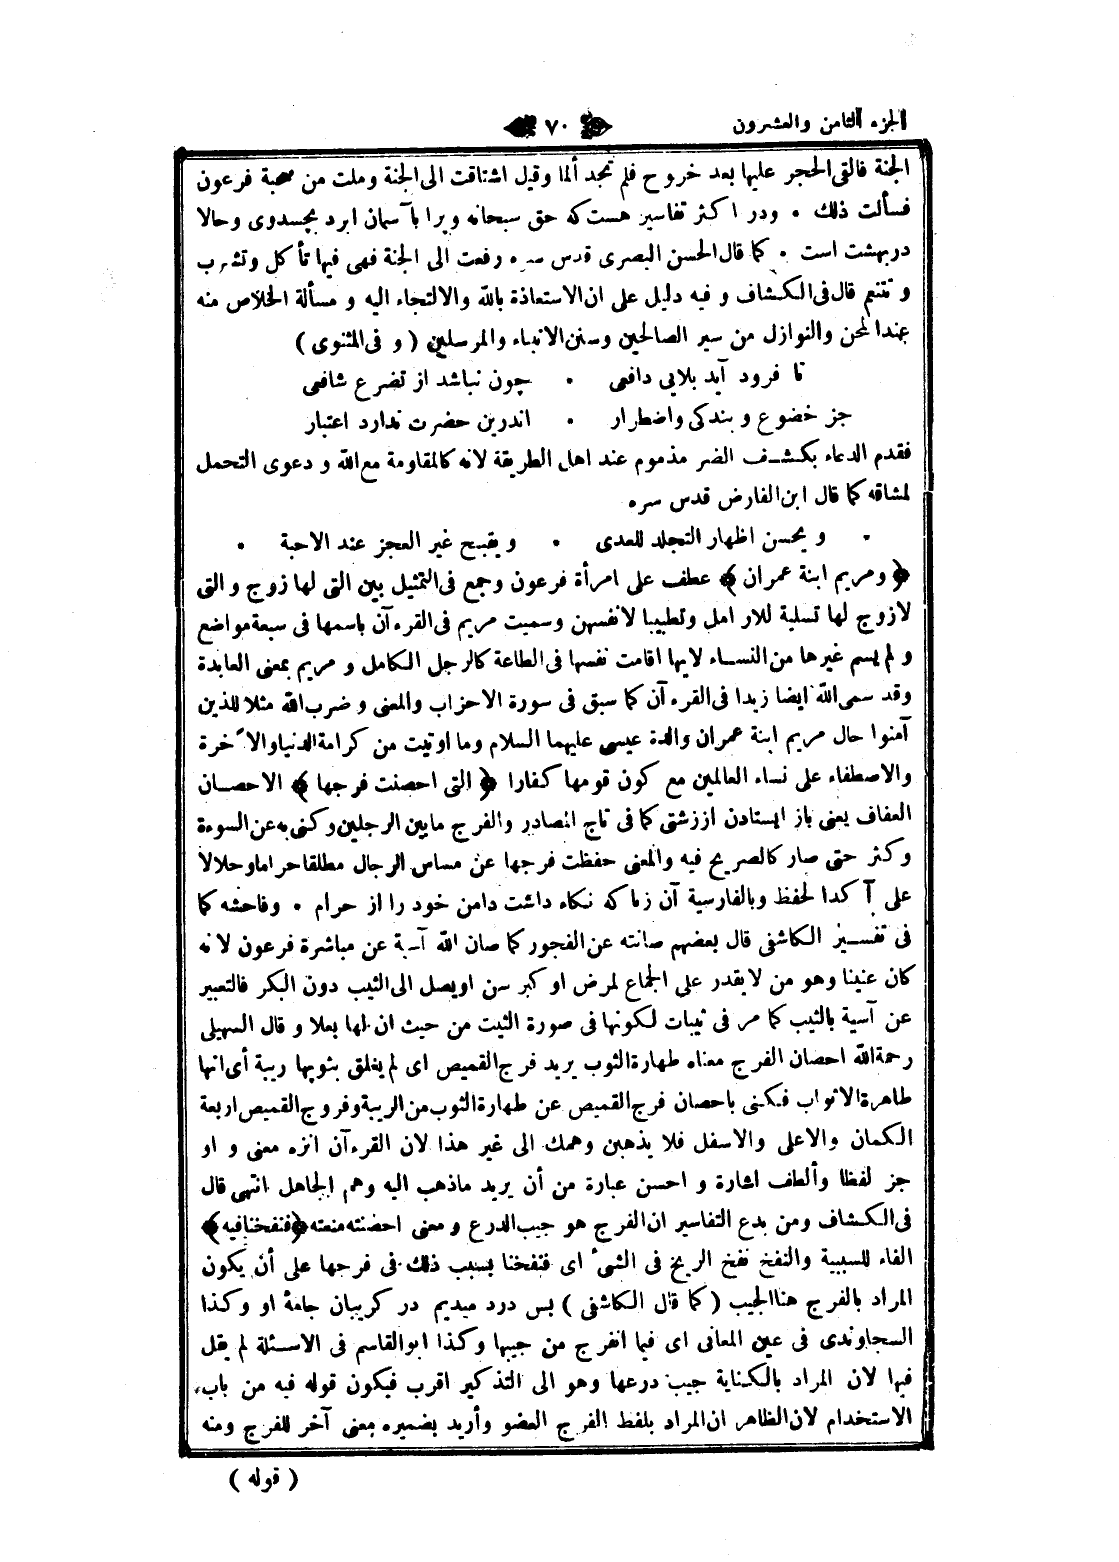 الجزء الثامن والعشرون
٧٠
الجنة فالقى الحجر عليها بعد خروح فلم تجد ألما وقيل اشتاقت الى الجنة وملت من صحبة فرعون
فسألت ذلك • ودر اكثر تفاسير هست كه حق سبحانه ويرا بآسمان ابرد بجسدوى وحالا
در بهشت است • كما قال الحسن البصرى قدس سره رفعت الى الجنة فهى فيها تأكل وتشرب
وتتنعم قال فى الكشاف وفيه دليل على ان الاستعاذة بالله والالتجاء اليه ومسألة الخلاص منه
عند المحن والنوازل من سير الصالحين وسنن الانبياء والمرسلين ( و فى المثنوى )
تا فرود آيد بلايى دافعى • چون نباشد از تضرع شافعى
جز خضوع و بندكى واضطرار • اندرين حضرت ندارد اعتبار
فقدم الدعاء بكشف الضر مذموم عند اهل الطريقة لانه كالمقاومة مع الله ودعوى التحمل
لمشاقه كما قال ابن الفارض قدس سره
• ويحسن اظهار التجلد للعدى • ويقبح غير العجز عند الاحبة •
﴿ ومريم ابنة عمران ﴾ عطف على امرأة فرعون وجمع فى التمثيل بين التى لها زوج والتى
لازوج لها تسلية للارامل وتطييبا لانفسهن وسميت مريم فى القرءآن باسمها فى سبعة مواضع
ولم يسم غيرها من النساء لانها اقامت نفسها فى الطاعة كالرجل الكامل ومريم بمعنى العابدة
وقد سمى الله ايضا زيدا فى القرءآن كما سبق فى سورة الاحزاب والمعنى وضرب الله مثلا للذين
آمنوا حال مريم ابنة عمران والدة عيسى عليهما السلام وما اوتيت من كرامة الدنيا والآخرة
والاصطفاء على نساء العالمين مع كون قومها كفارا ﴿ التى احصنت فرجها ﴾ الاحصان
العفاف يعنى باز ايستادن اززشتى كما فى تاج المصادر والفرج مابين الرجلين وكنى به عن السوءة
وكثر حتى صار كالصريح فيه والمعنى حفظت فرجها عن مساس الرجال مطلقا حراما وحلالا
على آكدا لحفظ وبالفارسية آن زنا كه نكاه داشت دامن خود را از حرام • وفاحشه كما
فى تفسير الكاشفى قال بعضهم صانته عن الفجور كما صان الله آسية عن مباشرة فرعون لانه
كان عنينا وهو من لايقدر على الجماع لمرض او كبر سن اويصل الى الثيب دون البكر فالتعبير
عن آسية بالثيب كما مر فى ثيبات لكونها فى صورة الثيب من حيث ان لها بعلا وقال السهيلى
رحمة الله احصان الفرج معناه طهارة الثوب يريد فرج القميص اى لم يعلق بثوبها ريبة أى انها
طاهرة الاثواب فكنى باحصان فرج القميص عن طهارة الثوب من الريبة وفروج القميص اربعة
الكمان والاعلى والاسفل فلا يذهبن وهمك الى غير هذا لان القرءآن انزه معنى و او
جز لفظا وألطف اشارة و احسن عبارة من أن يريد ماذهب اليه وهم الجاهل انتهى قال
فى الكشاف ومن بدع التفاسير ان الفرج هو جيب الدرع ومعنى احصنته منعته ﴿ فنفخنا فيه ﴾
الفاء للسببية والنفخ نفخ الريح فى الشئ اى فنفخنا بسبب ذلك فى فرجها على أن يكون
المراد بالفرج هنا الجيب ( كما قال الكاشفى ) بس درد ميديم در كريبان جامهٔ او وكذا
السجاوندى فى عين المعانى اى فيما انفرج من جيبها وكذا ابوالقاسم فى الاسئلة لم يقل
فيها لان المراد بالكناية جيب درعها وهو الى التذكير اقرب فيكون قوله فيه من باب
الاستخدام لان الظاهر ان المراد بلفظ الفرج العضو وأريد بضميره معنى آخر للفرج ومنه
( قوله )